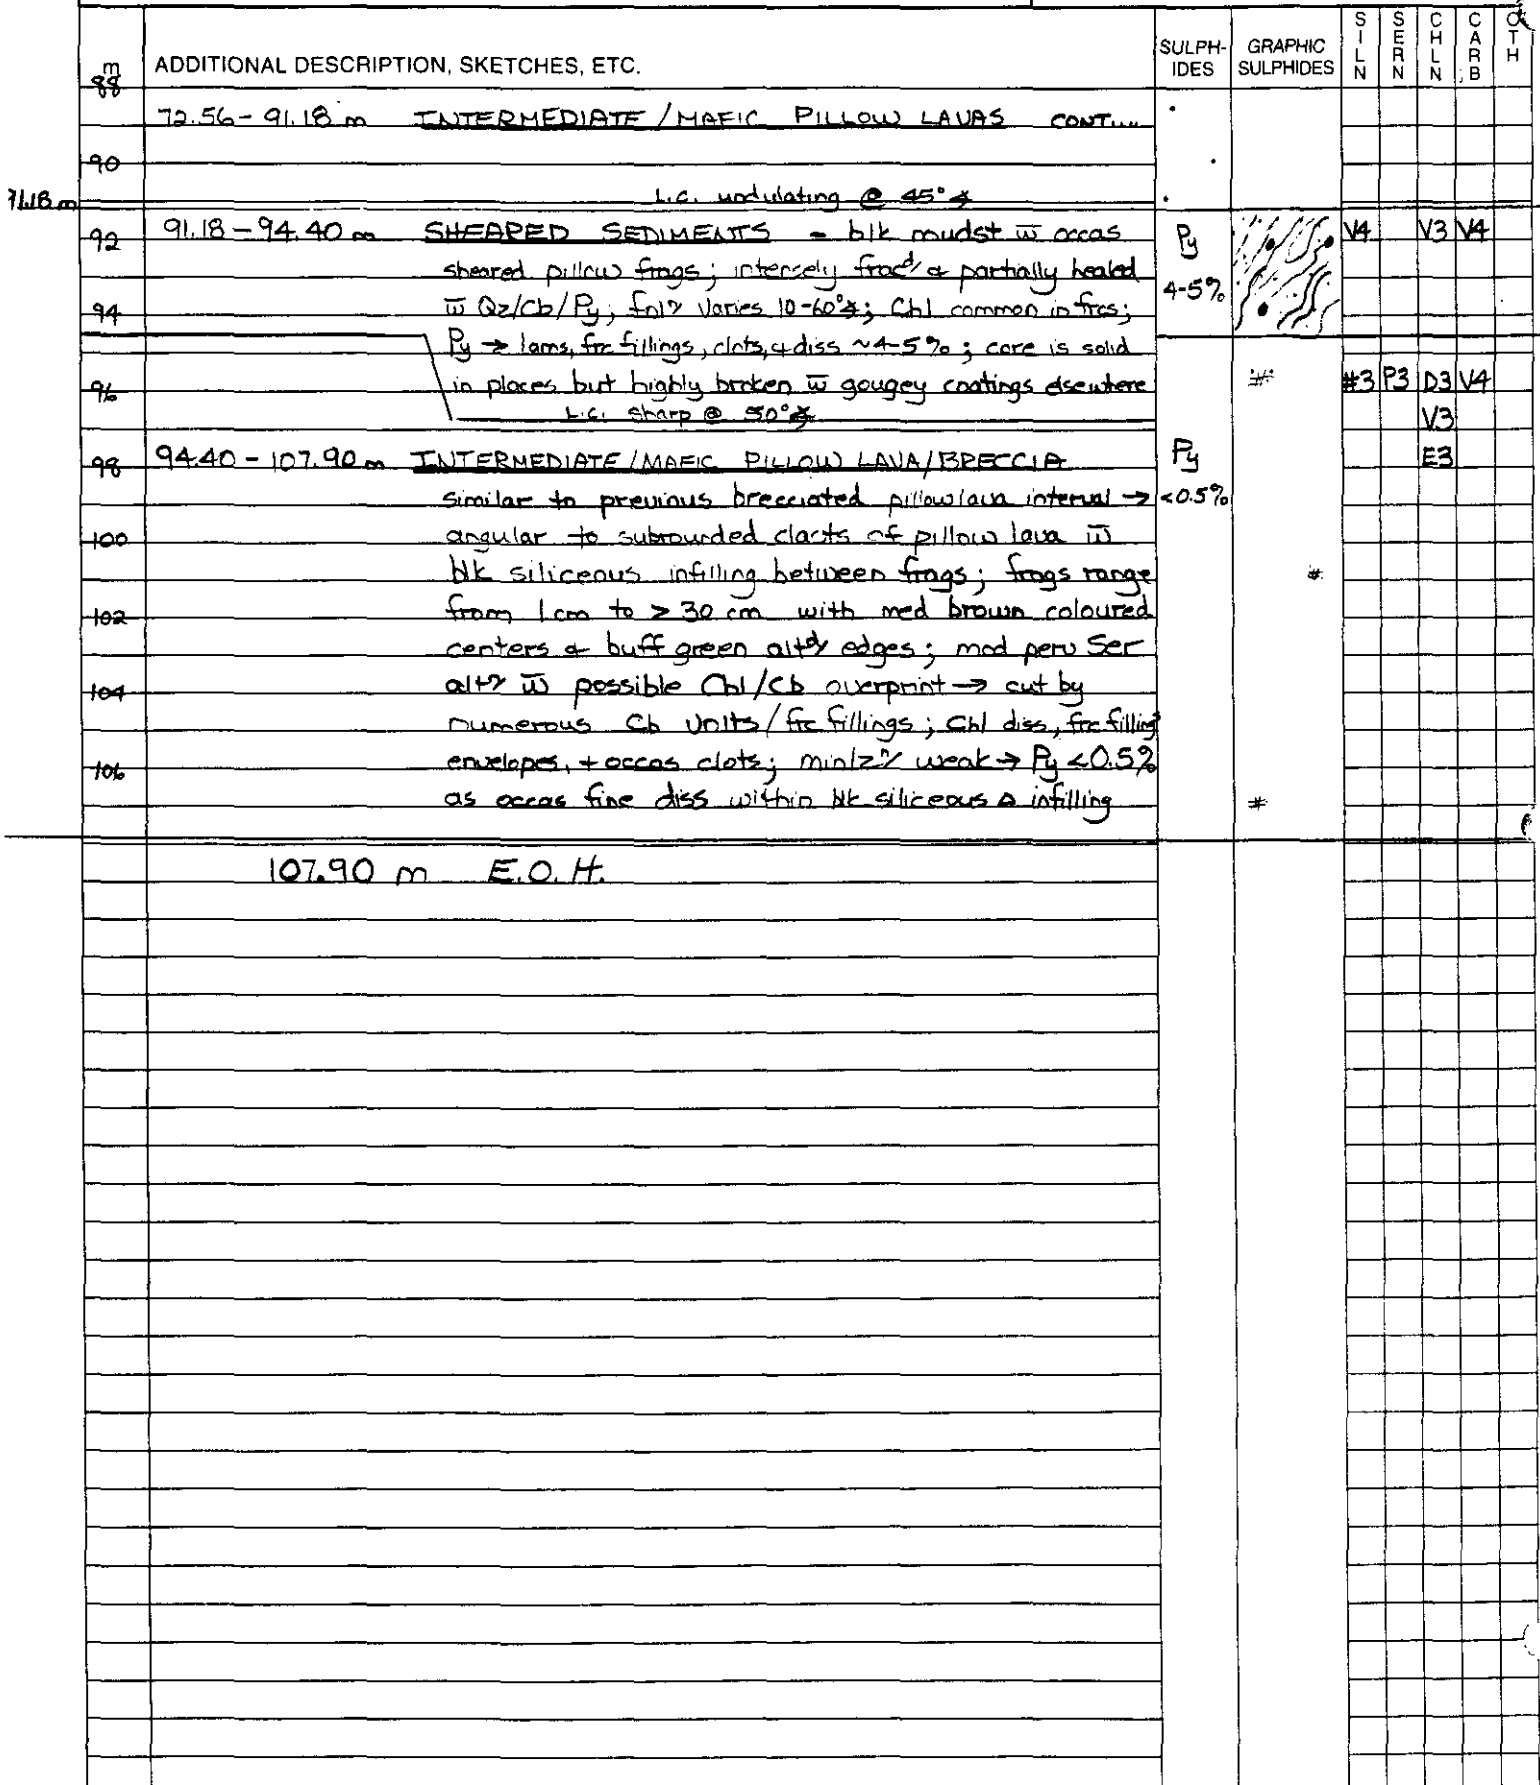 m ADDITIONAL DESCRIPTION, SKETCHES, ETC. SULPH-IDES GRAPHIC SULPHIDES SILN SERN CHLN CARB OTH
88
72.56 - 91.18 m INTERMEDIATE / MAFIC PILLOW LAVAS CONT....
90
L.C. undulating @ 45°∡
91.18 m
92 91.18 - 94.40 m SHEARED SEDIMENTS - blk mudst w̄ occas Py V4 V3 V4
sheared pillow frags; intensely frac'd & partially healed
w̄ Qz/Cb/Py; fol'n varies 10-60°∡; Chl common in frcs; 4-5%
94
Py → lams, frc fillings, clots, & diss ~4-5%; core is solid
96 in places but highly broken w̄ gougey coatings elsewhere #3 P3 D3 V4
L.C. sharp @ 50°∡ V3
98 94.40 - 107.90 m INTERMEDIATE / MAFIC PILLOW LAVA/BRECCIA Py E3
similar to previous brecciated pillow lava interval → <0.5%
100 angular to subrounded clasts of pillow lava w̄
blk siliceous infilling between frags; frags range #
102 from 1cm to > 30 cm with med brown coloured
centers & buff green alt'd edges; mod perv Ser
104 alt'n w̄ possible Chl/Cb overprint → cut by
numerous Cb vnlts/frc fillings; Chl diss, frc filling
106 envelopes, + occas clots; minlz'n weak → Py <0.5%
as occas fine diss within blk siliceous Δ infilling #
107.90 m E.O.H.